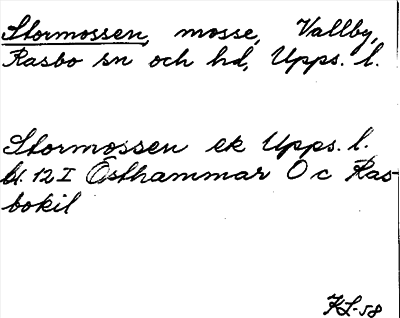 Stormossen, mosse, Vallby,
Rasbo sn och hd, Upps. l.
Stormossen ek Upps. l.
bl. 12 I Östhammar O c Ras-
bokil
KL-58